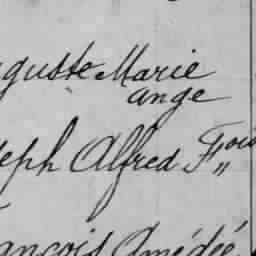 guste Marie
ange
seph Alfred Fçois
ançois Amédée